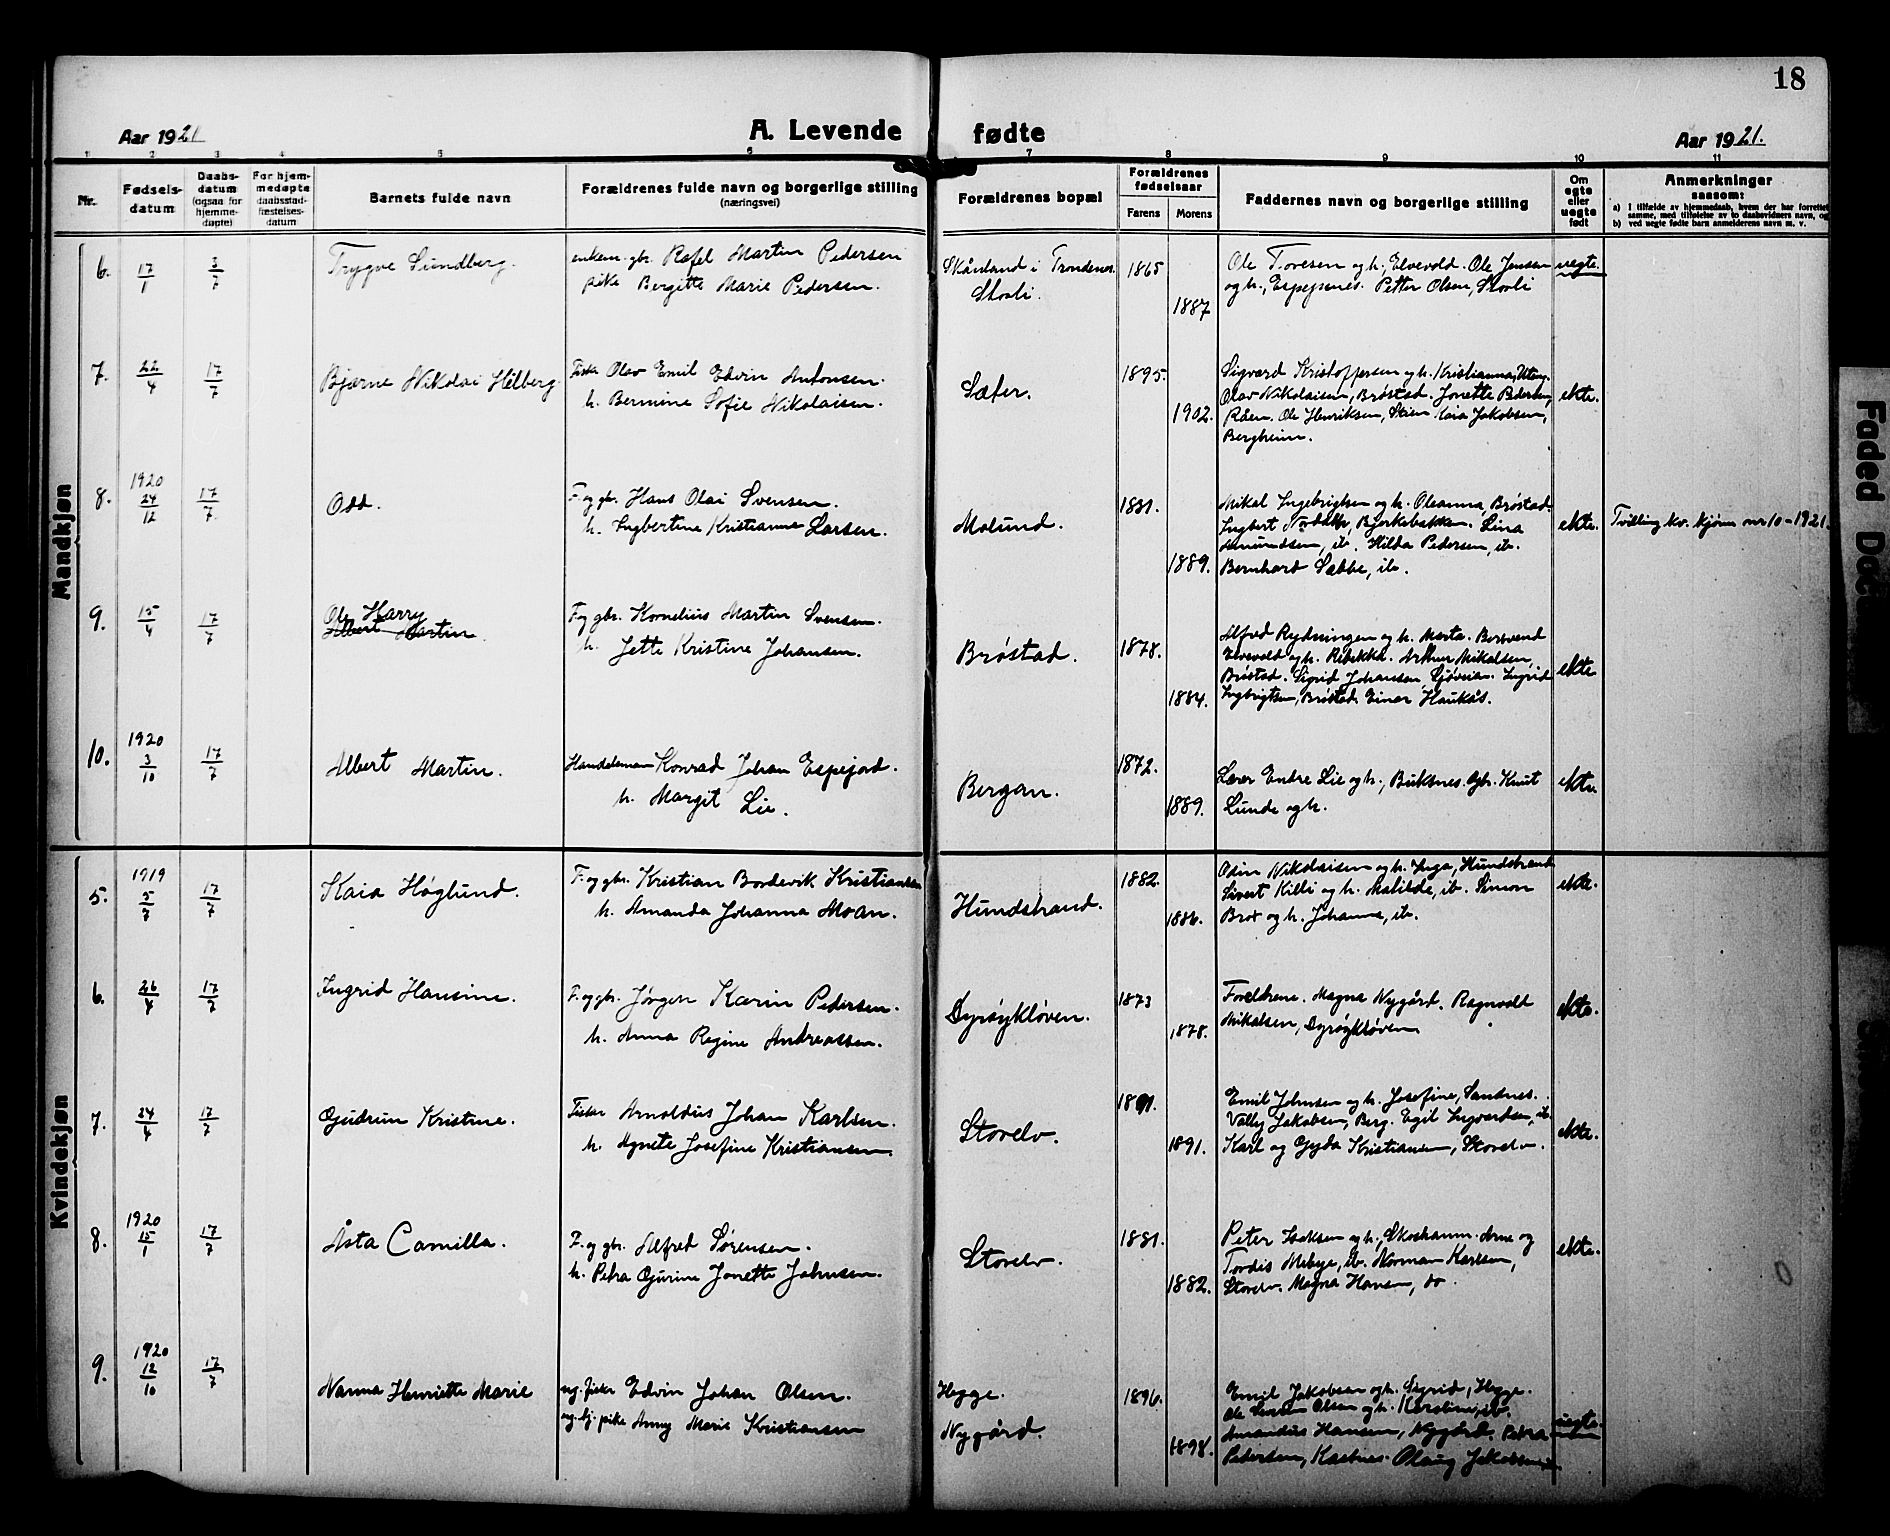 18
Aar 1921
A. Levende fødte
Aar 1921.
1 2 3 4 5 6 7 8 9 10 11
Nr.
Fødsels-
datum
Daabs-
datum
(ogsaa for
hjemme-
døpte)
For hjem-
medøpte
daabsstad-
fæstelses-
datum
Barnets fulde navn
Forældrenes fulde navn og borgerlige stilling
(næringsvei)
Forældrenes bopæl
Forældrenes
fødselsaar
Farens
Morens
Faddernes navn og borgerlige stilling
Om
egte
eller
uegte
født
Anmerkninger
saasom:
a) I tilfælde av hjemmedaab, hvem der har forrettet
samme, med tilføielse av to daabsvidners navn, og
b) ved uegte fødte barn anmelderens navn m. v.
Mandkjøn
6. 17/1 3/7 Trygve Sundberg.
enkem. gbr. Rafel Martin Pedersen
pike Bergitte Marie Pedersen.
Skånland i Trondenes
Storli.
1865
1887
Ole Toresen og h., Elvevold. Ole Jensen
og h., Espejsnes. Petter Olsen, Storli
uegte.
7. 22/4 17/7 Bjarne Nikolai Hilberg.
Fisker Olav Emil Edvin Antonsen.
h. Bermine Sofie Nikolaisen.
Sæter.
1895.
1902.
Sigvard Kristoffersen og h. Kristianna,
Olav Nikolaisen, Brøstad. Jonette Pedersen,
Råen. Ole Henriksen, Skien. Kaia Jakobsen,
Bergheim.
ekte.
8. 1920 24/12 17/7 Odd.
F. og gbr. Hans Olai Svensen.
h. Ingbertine Kristianne Larsen.
Molund.
1881.
1889.
Mikal Ingebrigtsen og h. Oleanna, Brøstad.
Ingbert, Bjorkebakken. Lina
Amundsen, ib. Hilda Pedersen, ib.
Bernhard Sæbbe, ib.
ekte.
Tvilling kv. kjønn nr 10 - 1921.
9. 15/4 17/7 Ole Harry
Albert Martin.
F. og gbr. Kornelius Martin Svensen.
h. Jette Kristine Johansen.
Brøstad.
1878.
1884.
Alfred Rydningen og h. Marta.
Elvevold og h. Rebekka. Arthur Mikalsen,
Brøstad. Sigrid Johansen, Sjøveian. Ingrid
Ingbrigtsen, Brøstad. Einar Haukås.
ekte
10. 1920 3/10 17/7 Albert Martin.
Handelsmann Konrad Johan Espejord.
h. Margit Lie.
Bergan.
1872.
1889.
Lærer Endre Lie og h., Buksnes. Gbr. Knut
Lunde og h.
ekte.
Kvindekjøn
5. 1919 5/7 17/7 Kaia Høglund.
F. og gbr. Kristian Bordevik Kristiansen
h. Amanda Johanna Moan.
Hundstrand.
1882.
1886.
Odin Nikolaisen og h. Inga, Hundstrand
Sivert Killi og h. Matilde, ib. Simon
Brox og h. Johanna, ib.
ekte.
6. 26/4 17/7 Ingrid Hansine.
F. og gbr. Jørgen Karin Pedersen.
h. Anna Regine Andreassen.
Dyrøykløven.
1873
1878.
Foreldrene. Magna Nygård. Ragnvald
Mikalsen, Dyrøykløven
ekte.
7. 24/4 17/7 Gudrun Kristine.
Fisker Arnoldus Johan Karlsen.
h. Agnete Josefine Kristiansen.
Storelv.
1891.
1891.
Emil Johnsen og h. Josefine, Sandnes.
Valby Jakobsen, Berg. Egil Ingvardsen, ib.
Karl og Gyda Kristiansen, Storelv.
ekte.
8. 1920 15/1 17/7 Åsta Camilla.
F. og gbr. Alfred Sørensen.
h. Petra Gurine Jonette Johnsen.
Storelv.
1881.
1882.
Peter Isaksen og h., Skoshamn. Arne og
Tordis Mebye, ib. Norman Karlsen,
Storelv. Magna Hansen, do
ekte.
0
9. 1920 12/10 17/7 Nanna Henriette Marie
ug. fisker Edvin Johan Olsen.
ug. hj. pike Anny Marie Kristiansen
Hegge.
Nygård.
1896.
1898.
Emil Jakobsen og h. Sigrid, Hegge.
Ole Olsen og h. Karoline, ib.
Amandus Hansen, Nygård. Petra
Pedersen, Kastnes. Olaug Jakobsen
uegte.
Faded Doc